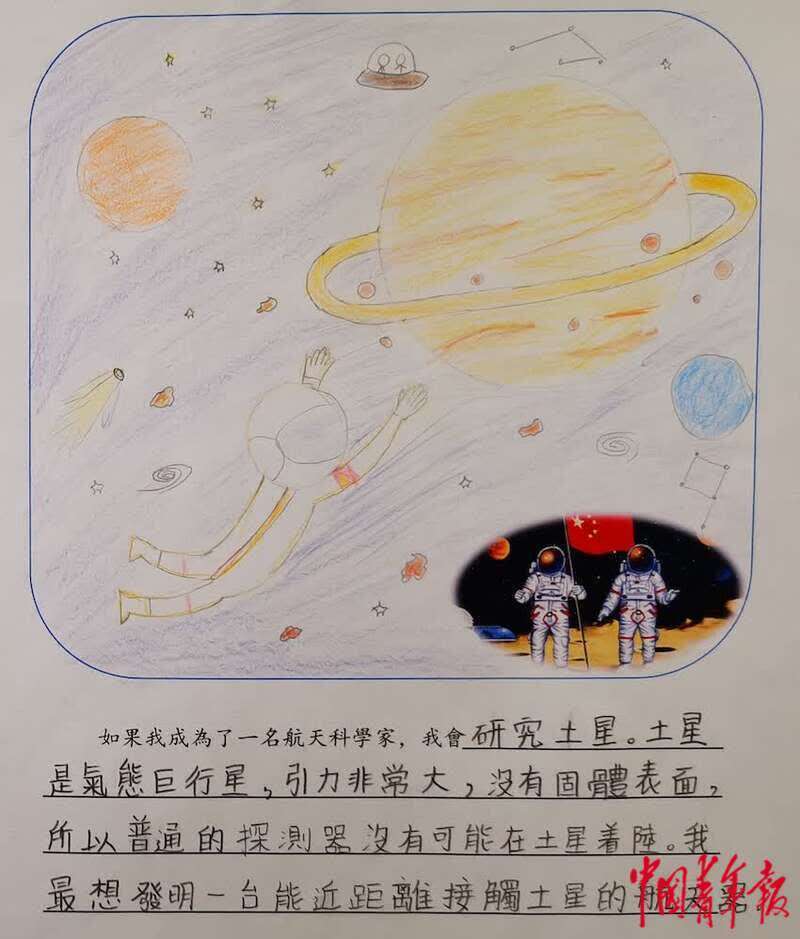 如果我成為了一名航天科學家，我會研究土星。土星
是氣態巨行星，引力非常大，沒有固體表面，
所以普通的探測器沒有可能在土星着陸。我
最想發明一台能近距離接觸土星的航天器。
中国青年报